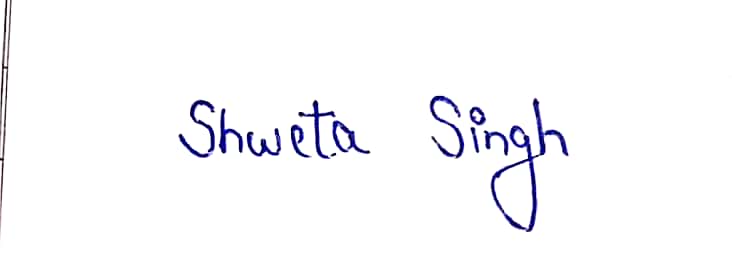 Shweta Singh